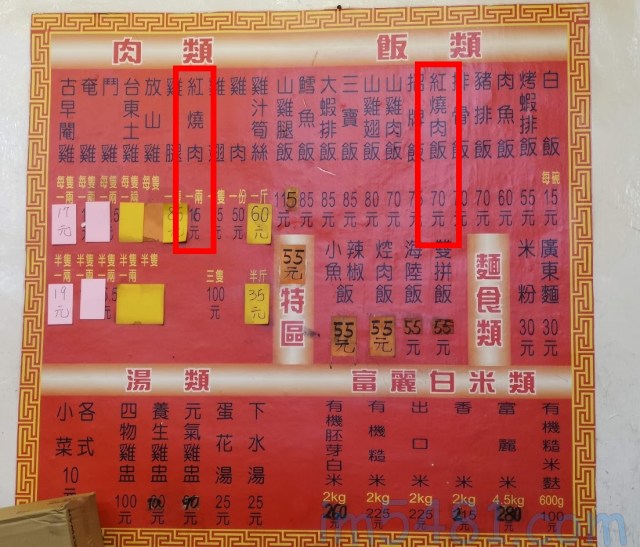 肉類
雞汁筍絲 一斤 60元 半斤 35元
雞肉 一份 50元
雞翅 三隻 100元
紅燒肉 一兩 元
雞腿
放山雞 每隻 半隻
台東土雞 每隻一兩 半隻一兩
鬥雞 每隻一兩 半隻一兩
奄雞 每隻一兩 半隻一兩
古早閹雞 每隻一兩 17元 半隻一兩 19元
飯類
白飯 每碗 15元
烤蝦排飯 55元
肉魚飯 60元
豬排飯 70元
排骨飯 70元
紅燒肉飯 70元
招牌飯 75元
山雞肉飯 70元
山雞翅飯 80元
三寶飯 85元
大蝦排飯 85元
鱈魚飯 85元
山雞腿飯 115元
55元
特區
雙拼飯 55
海陸飯 55元
焢肉飯 55元
辣椒小魚飯 55元
麵食類
廣東麵 30元
米粉 30元
湯類
下水湯 25元
蛋花湯 25元
元氣雞盅 90元
養生雞盅 100元
四物雞盅 100元
各式小菜 10元
富麗白米類
有機糙米麩 600g 100元
富麗米 4.5kg 280元
香米 2kg 215元
出口米 2kg 225元
有機糙米 2kg 225元
有機胚芽白米 2kg 260元